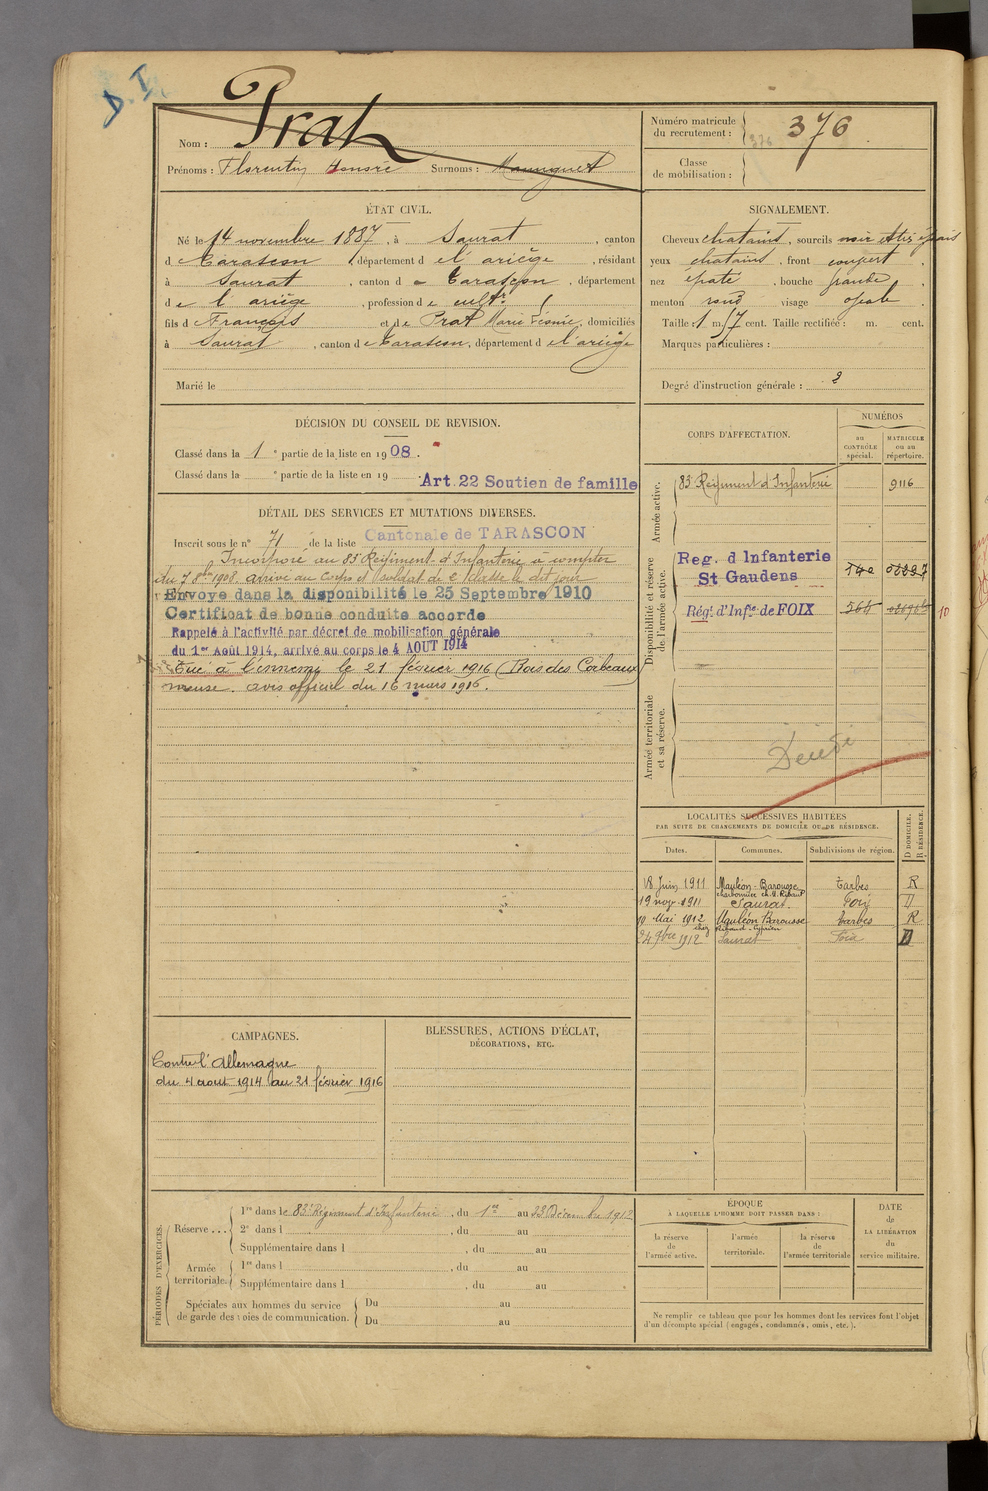 D. I.
Nom : Prat
Prénoms : Florentin Honoré Surnoms : Maunguet
Numéro matricule du recrutement : 376
376
Classe de mobilisation :
ÉTAT CIVIL.
Né le 14 novembre 1887, à Saurat, canton
de Tarascon, département de l'ariège, résidant
à Saurat, canton de Tarascon, département
de l'ariège, profession de cultr
fils de François et de Prat Marie, domiciliés
à Saurat, canton de Tarascon, département de l'ariège
Marié le
SIGNALEMENT.
Cheveux chatains, sourcils noir
yeux chatains, front couvert,
nez épaté, bouche grande,
menton rond, visage ovale
Taille : 1 m. 57 cent. Taille rectifiée : m. cent.
Marques particulières :
Degré d'instruction générale : 2
DÉCISION DU CONSEIL DE REVISION.
Classé dans la 1e partie de la liste en 1908.
Classé dans la e partie de la liste en 19
Art. 22 Soutien de famille
DÉTAIL DES SERVICES ET MUTATIONS DIVERSES.
Inscrit sous le n° 71 de la liste Cantonale de TARASCON
Incorporé au 83e Régiment d'Infanterie à compter
du 7 8bre 1908. arrivé au corps et soldat de 2e classe le dit jour
Envoyé dans la disponibilité le 25 Septembre 1910
Certificat de bonne conduite accordé
Rappelé à l'activité par décret de mobilisation générale
du 1er Août 1914, arrivé au corps le 4 AOUT 1914
Tué à l'ennemi le 21 février 1916 (Bois des Corbeaux)
meuse. avis officiel du 16 mars 1916.
CORPS D'AFFECTATION.
NUMÉROS
au CONTRÔLE spécial.
MATRICULE ou au répertoire.
Armée active.
83e Régiment d'Infanterie 9116
Disponibilité et réserve de l'armée active.
Reg. d Infanterie
St Gaudens
Régt d'Infie de FOIX
10
Armée territoriale et sa réserve.
Décédé
LOCALITÉS SUCCESSIVES HABITÉES
PAR SUITE DE CHANGEMENTS DE DOMICILE OU DE RÉSIDENCE.
Dates. Communes. Subdivisions de région. D DOMICILE. R RÉSIDENCE.
18 Juin 1911 Mauléon-Barousse Tarbes R
charbonnier ch. M. Ribaut
19 nov. 1911 Saurat. Foix D
19 Mai 1912 Mauléon Barousse Tarbes R
chez Ribaud Cyprien
24 9bre 1912 Saurat Foix D
CAMPAGNES.
Contre l'Allemagne
du 4 aout 1914 au 21 février 1916
BLESSURES, ACTIONS D'ÉCLAT,
DÉCORATIONS, ETC.
PÉRIODES D'EXERCICES.
Réserve ...
1re dans le 83e Régiment d'Infanterie, du 1er au 23 Décembre 1912
2e dans l , du au
Supplémentaire dans l , du au
Armée territoriale.
1re dans l , du au
Supplémentaire dans l , du au
Spéciales aux hommes du service de garde des voies de communication.
Du au
Du au
ÉPOQUE
À LAQUELLE L'HOMME DOIT PASSER DANS :
la réserve de l'armée active.
l'armée territoriale.
la réserve de l'armée territoriale
DATE de LA LIBÉRATION du service militaire.
Ne remplir ce tableau que pour les hommes dont les services font l'objet
d'un décompte spécial (engagés, condamnés, omis, etc.).